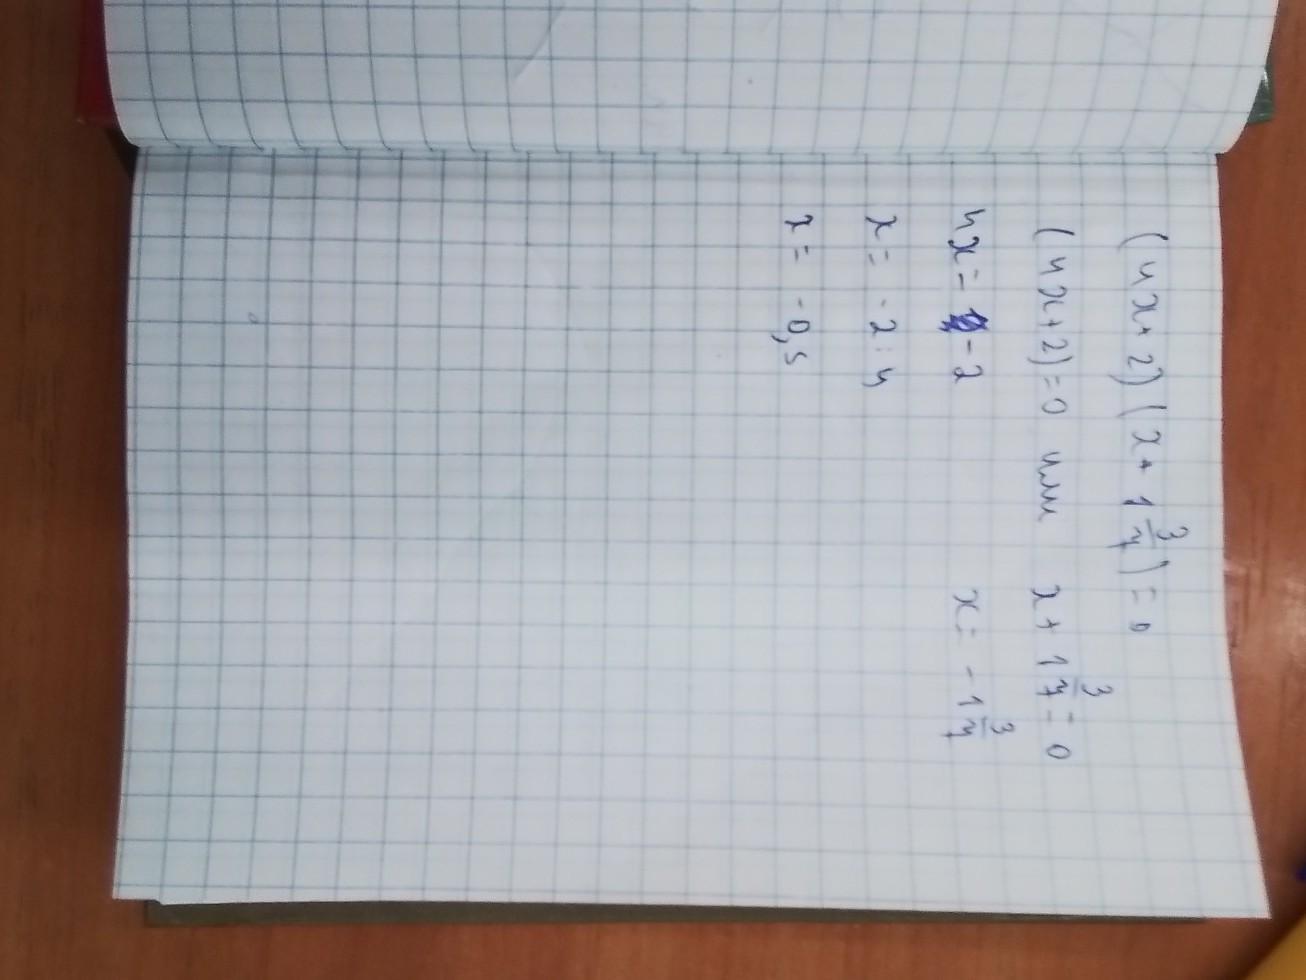 (4x+2)(x+1 3/7)=0
(4x+2)=0 или x+1 3/7=0
4x= -2 x= -1 3/7
x= -2:4
x= -0,5